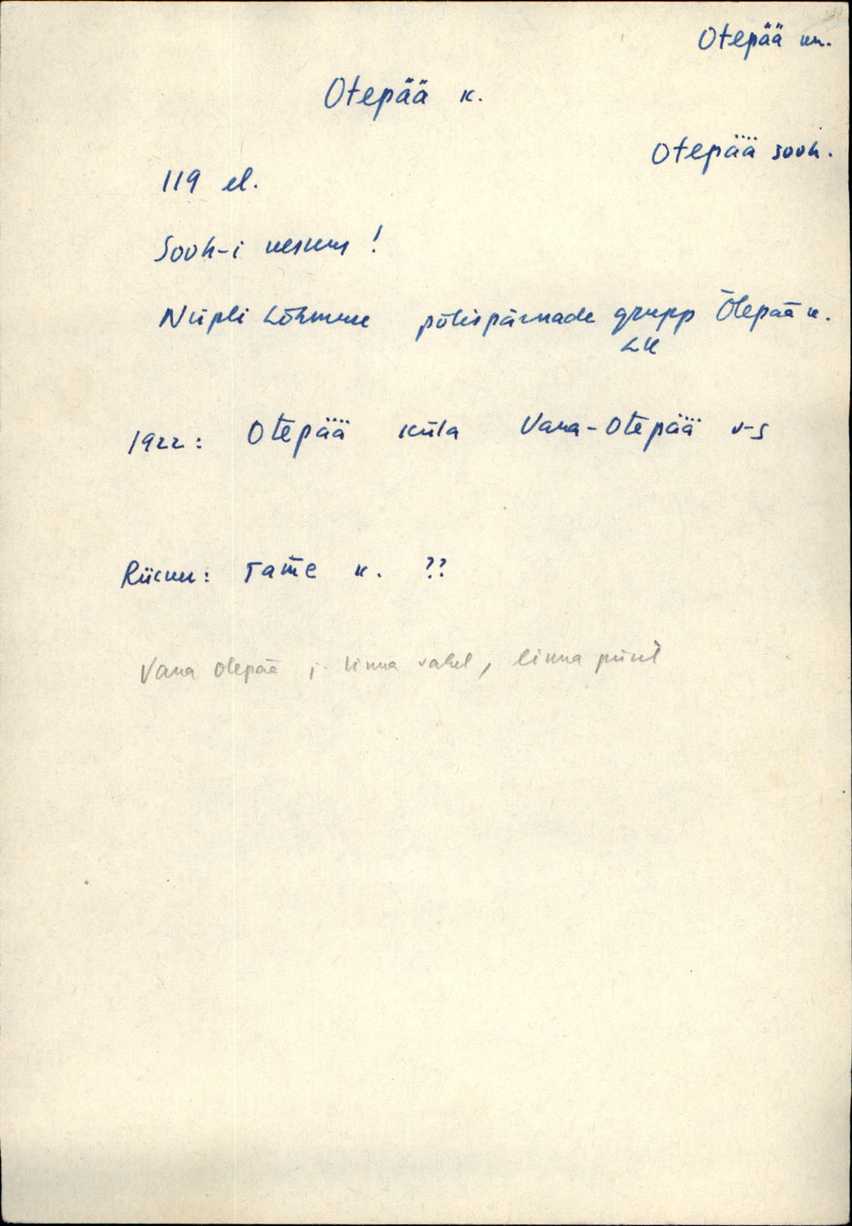 Otepää kn.
Otepää k.
Otepää sovh.
119 el.
Sovh-i keskus!
Nüpli Lõhmuse põlispärnade grupp Otepää k.
LK
1922: Otepää küla Vana-Otepää v-s
Tatte k. ??
Vana Otepää j. linna vahel, linna piiril